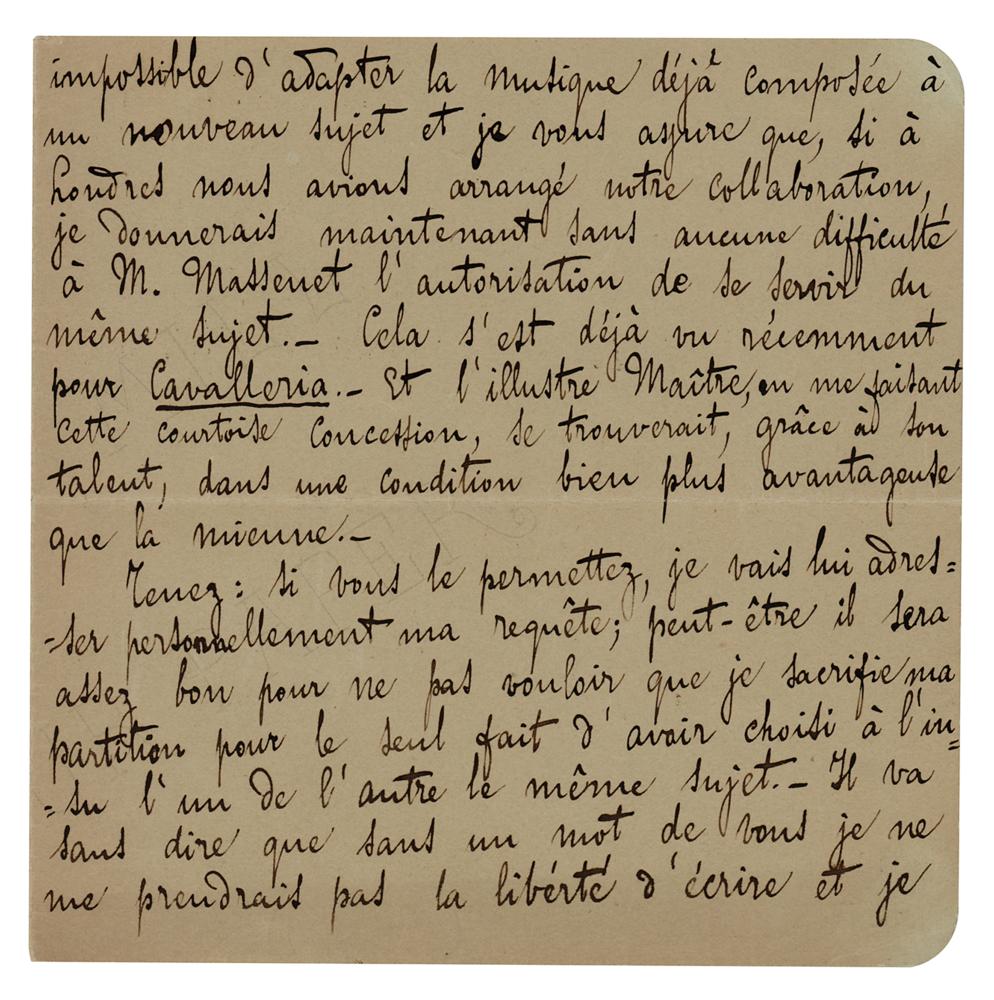 impossible d'adapter la musique déjà composée à
un nouveau sujet et je vous assure que, si à
Londres nous avions arrangé notre collaboration,
je donnerais maintenant sans aucune difficulté
à M. Massenet l'autorisation de se servir du
même sujet.- Cela s'est déjà vu récemment
pour Cavalleria.- Et l'illustre Maître, en me faisant
cette courtoise concession, se trouverait, grâce à son
talent, dans une condition bien plus avantageuse
que la mienne.-
Tenez: si vous le permettez, je vais lui adres=
=ser personnellement ma requête; peut-être il sera
assez bon pour ne pas vouloir que je sacrifie ma
partition pour le seul fait d'avoir choisi à l'in=
=su l'un de l'autre le même sujet.- Il va
sans dire que sans un mot de vous je ne
me prendrais pas la libérté d'écrire et je